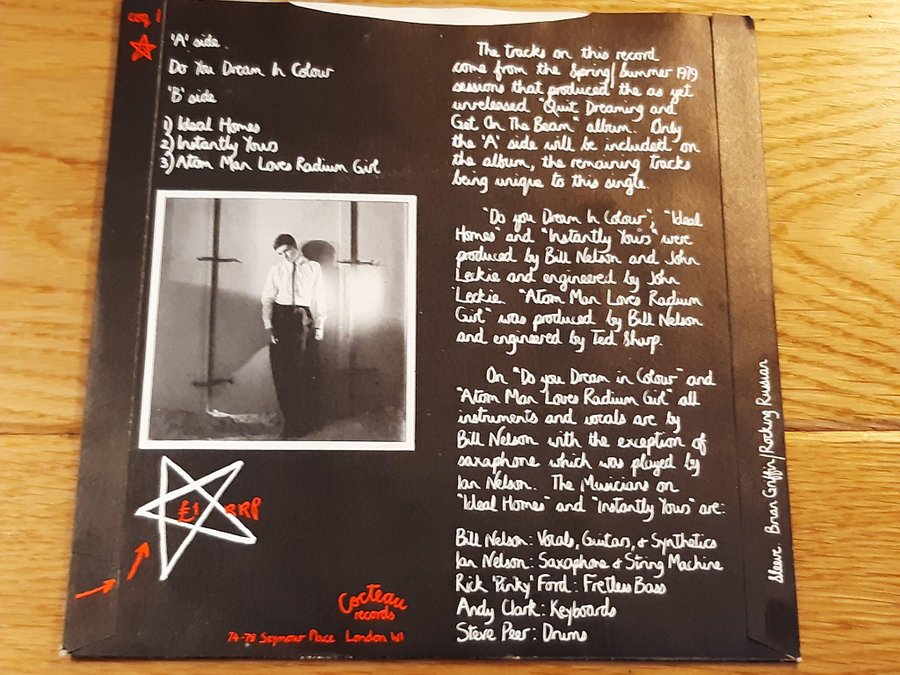 coq 1
'A' side.
Do You Dream In Colour
'B' side
1) Ideal Homes
2) Instantly Yours
3) Atom Man Loves Radium Girl
The tracks on this record
come from the Spring/Summer 1979
sessions that produced the as yet
unreleased "Quit Dreaming and
Get On The Beam" album. Only
the 'A' side will be included on
the album, the remaining tracks
being unique to this single.
"Do you Dream In Colour", "Ideal
Homes" and "Instantly Yours" were
produced by Bill Nelson and John
Leckie and engineered by John
Leckie. "Atom Man Loves Radium
Girl" was produced by Bill Nelson
and engineered by Ted Sharp.
On "Do you Dream in Colour" and
"Atom Man Loves Radium Girl" all
instruments and vocals are by
Bill Nelson with the exception of
saxaphone which was played by
Ian Nelson. The Musicians on
"Ideal Homes" and "Instantly Yours" are:
Bill Nelson: Vocals, Guitars, & Synthetics
Ian Nelson: Saxaphone & String Machine
Rick 'Pinky' Ford: Fretless Bass
Andy Clark: Keyboards
Steve Peer: Drums
£1 RRP
Cocteau
records
74-79 Seymour Place London W1
Sleeve Brian Griffin/Rocking Russian